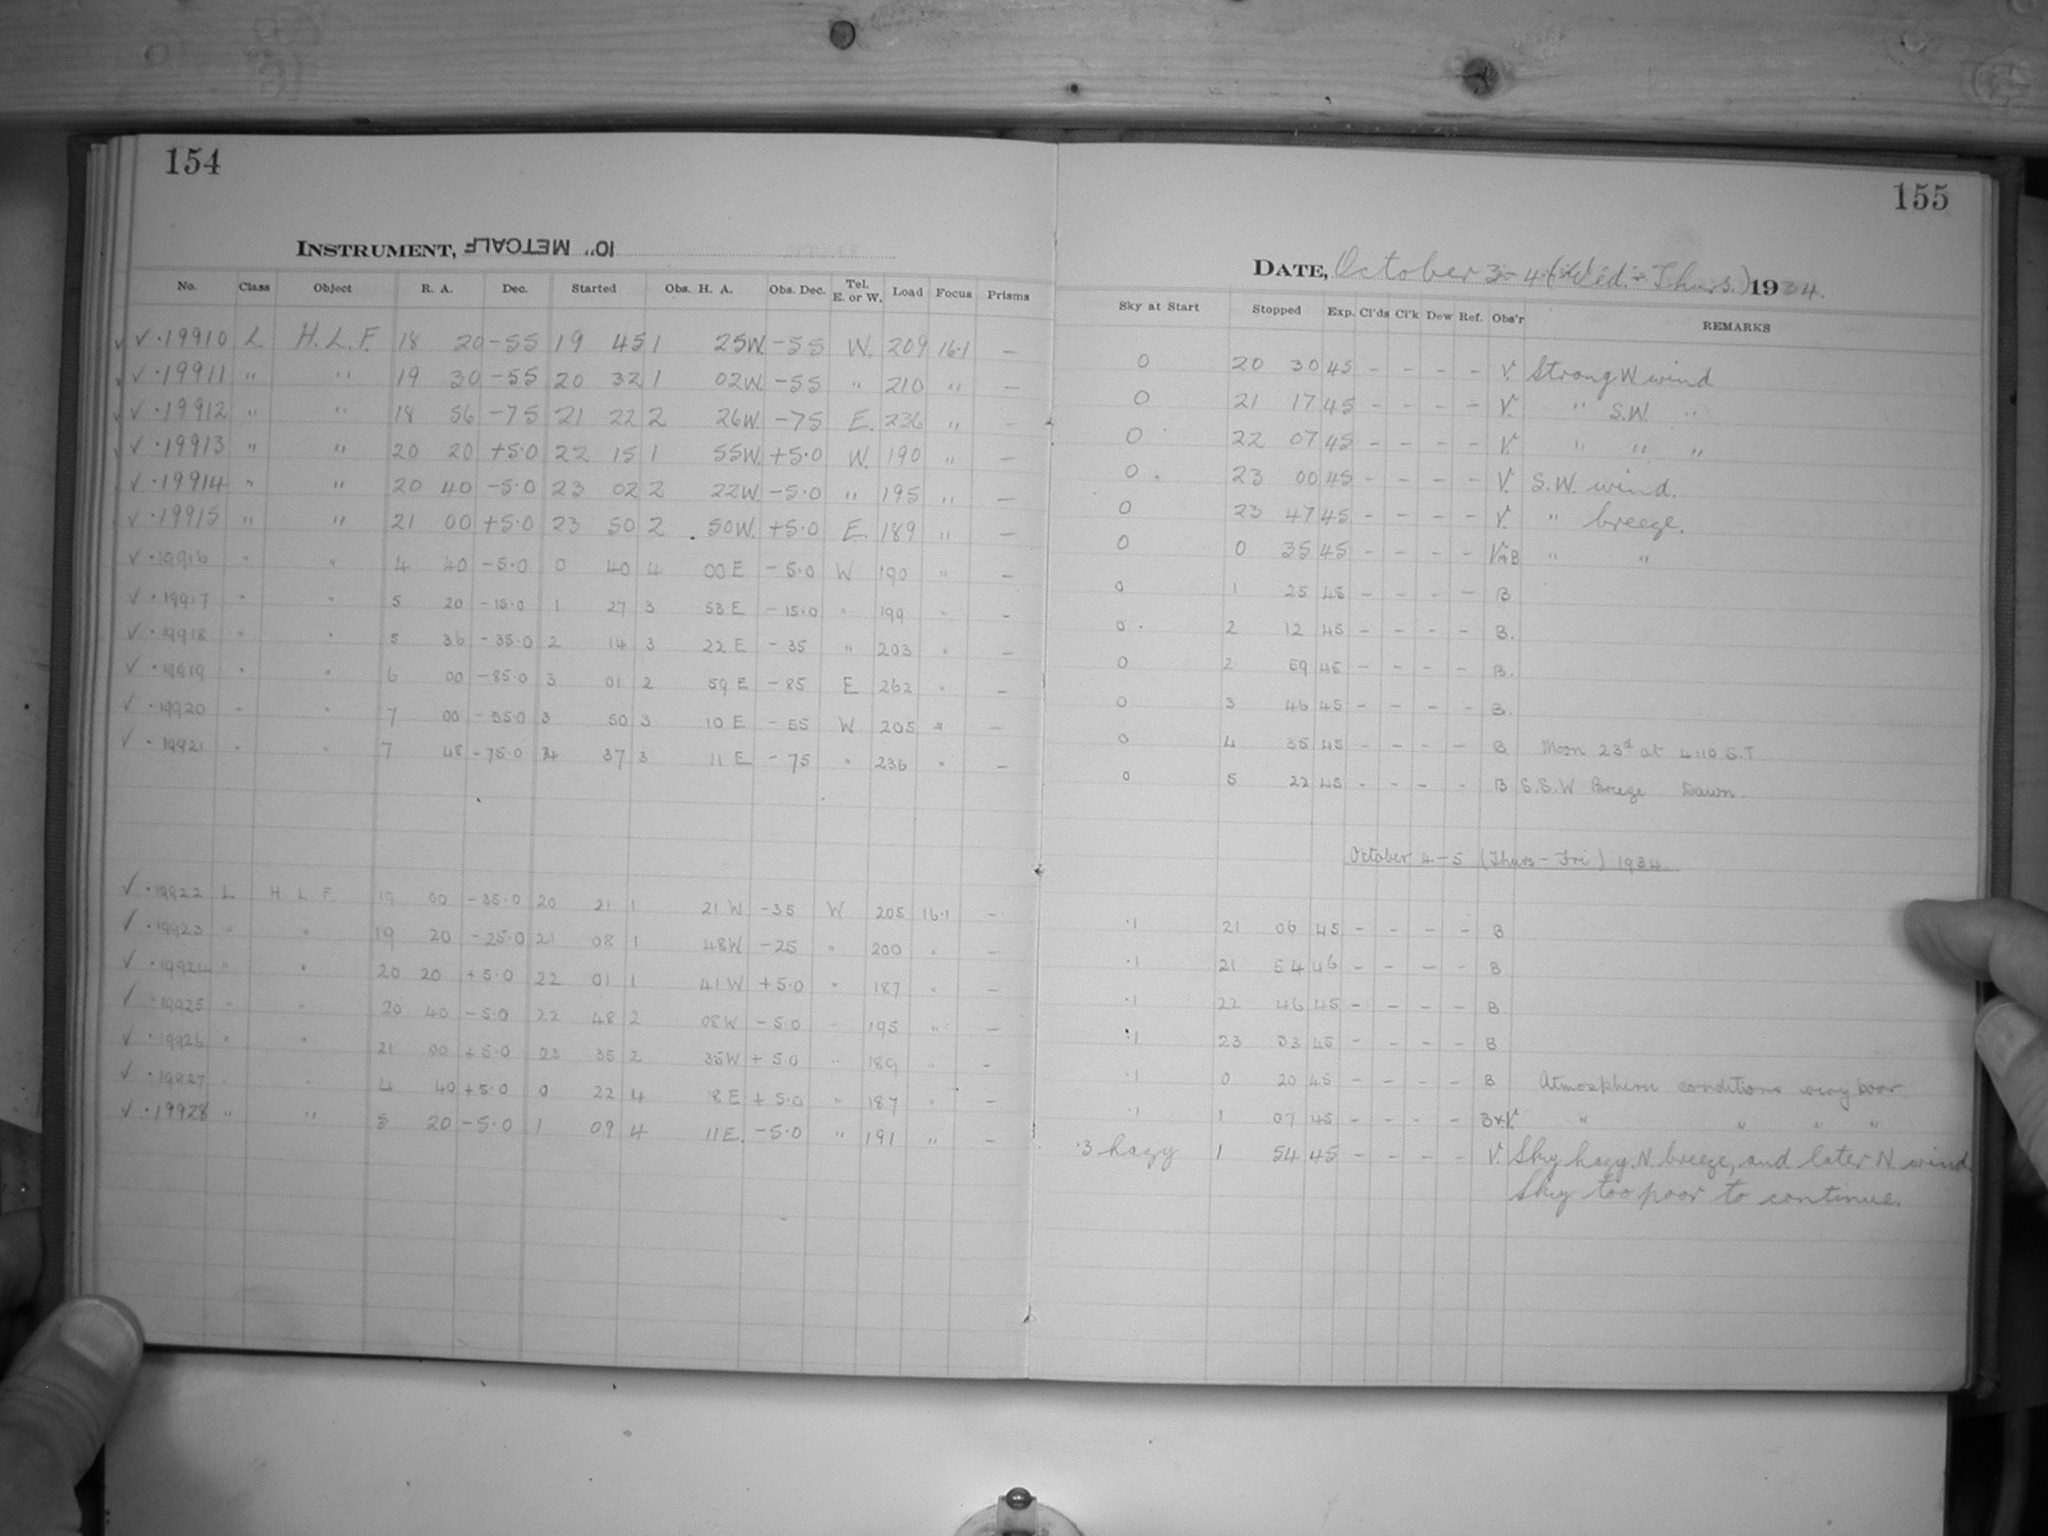 154
INSTRUMENT, 10" METCALF
No. Class Object R. A. Dec. Started Obs. H. A. Obs. Dec. Tel. E. or W. Load Focus Prisms
✓ ·19910 L H.L.F. 18 20 -55 19 45 1 25W. -55 W. 209 16·1 —
✓ ·19911 " " 19 30 -55 20 32 1 02W. -55 " 210 " —
✓ ·19912 " " 18 56 -75 21 22 2 26W. -75 E. 236 " —
✓ ·19913 " " 20 20 +5·0 22 15 1 55W. +5·0 W. 190 " —
✓ ·19914 " " 20 40 -5·0 23 02 2 22W. -5·0 " 195 " —
✓ ·19915 " " 21 00 +5·0 23 50 2 50W. +5·0 E. 189 " —
✓ ·19916 " " 4 40 -5·0 0 40 4 00 E -5·0 W 190 " —
✓ ·19917 " " 5 20 -15·0 1 27 3 53 E -15·0 " 199 " —
✓ ·19918 " " 5 36 -35·0 2 14 3 22 E -35 " 203 " —
✓ ·19919 " " 6 00 -85·0 3 01 2 59 E -85 E 262 " —
✓ ·19920 " " 7 00 -55·0 3 50 3 10 E -55 W 205 " —
✓ ·19921 " " 7 48 -75·0 4 37 3 11 E -75 " 236 " —
✓ ·19922 L H. L. F. 19 00 -35·0 20 21 1 21 W -35 W 205 16·1 —
✓ ·19923 " " 19 20 -25·0 21 08 1 48W -25 " 200 " —
✓ ·19924 " " 20 20 +5·0 22 01 1 41 W +5·0 " 187 " —
✓ ·19925 " " 20 40 -5·0 22 48 2 08W -5·0 " 195 " —
✓ ·19926 " " 21 00 +5·0 23 35 2 35W +5·0 " 189 " —
✓ ·19927 " " 4 40 +5·0 0 22 4 18 E +5·0 " 187 " —
✓ ·19928 " " 5 20 -5·0 1 09 4 11E. -5·0 " 191 " —
155
DATE, October 3-4 (Wed.-Thurs.) 1934.
Sky at Start Stopped Exp. Cl'ds Cl'k Dew Ref. Obs'r REMARKS
0 20 30 45 - - - - V. Strong W wind
0 21 17 45 - - - - V. " S.W. "
0 22 07 45 - - - - V. " " "
0 23 00 45 - - - - V. S.W. wind.
0 23 47 45 - - - - V. " breeze.
0 0 35 45 - - - - V B " "
0 1 25 45 - - - - B
0 2 12 45 - - - - B.
0 2 59 45 - - - - B.
0 3 46 45 - - - - B.
0 4 35 45 - - - - B Moon 23d at 4:10 S.T
0 5 22 45 - - - - B S.S.W Breeze Dawn
October 4-5 (Thurs-Fri) 1934
·1 21 06 45 - - - - B
·1 21 54 46 - - - - B
·1 22 46 45 - - - - B
·1 23 33 45 - - - - B
·1 0 20 45 - - - - B Atmospheric conditions very poor
·1 1 07 45 - - - - B+V. " " " "
·3 hazy 1 54 45 - - - - V. Sky hazy. N. breeze, and later N wind.
Sky too poor to continue.